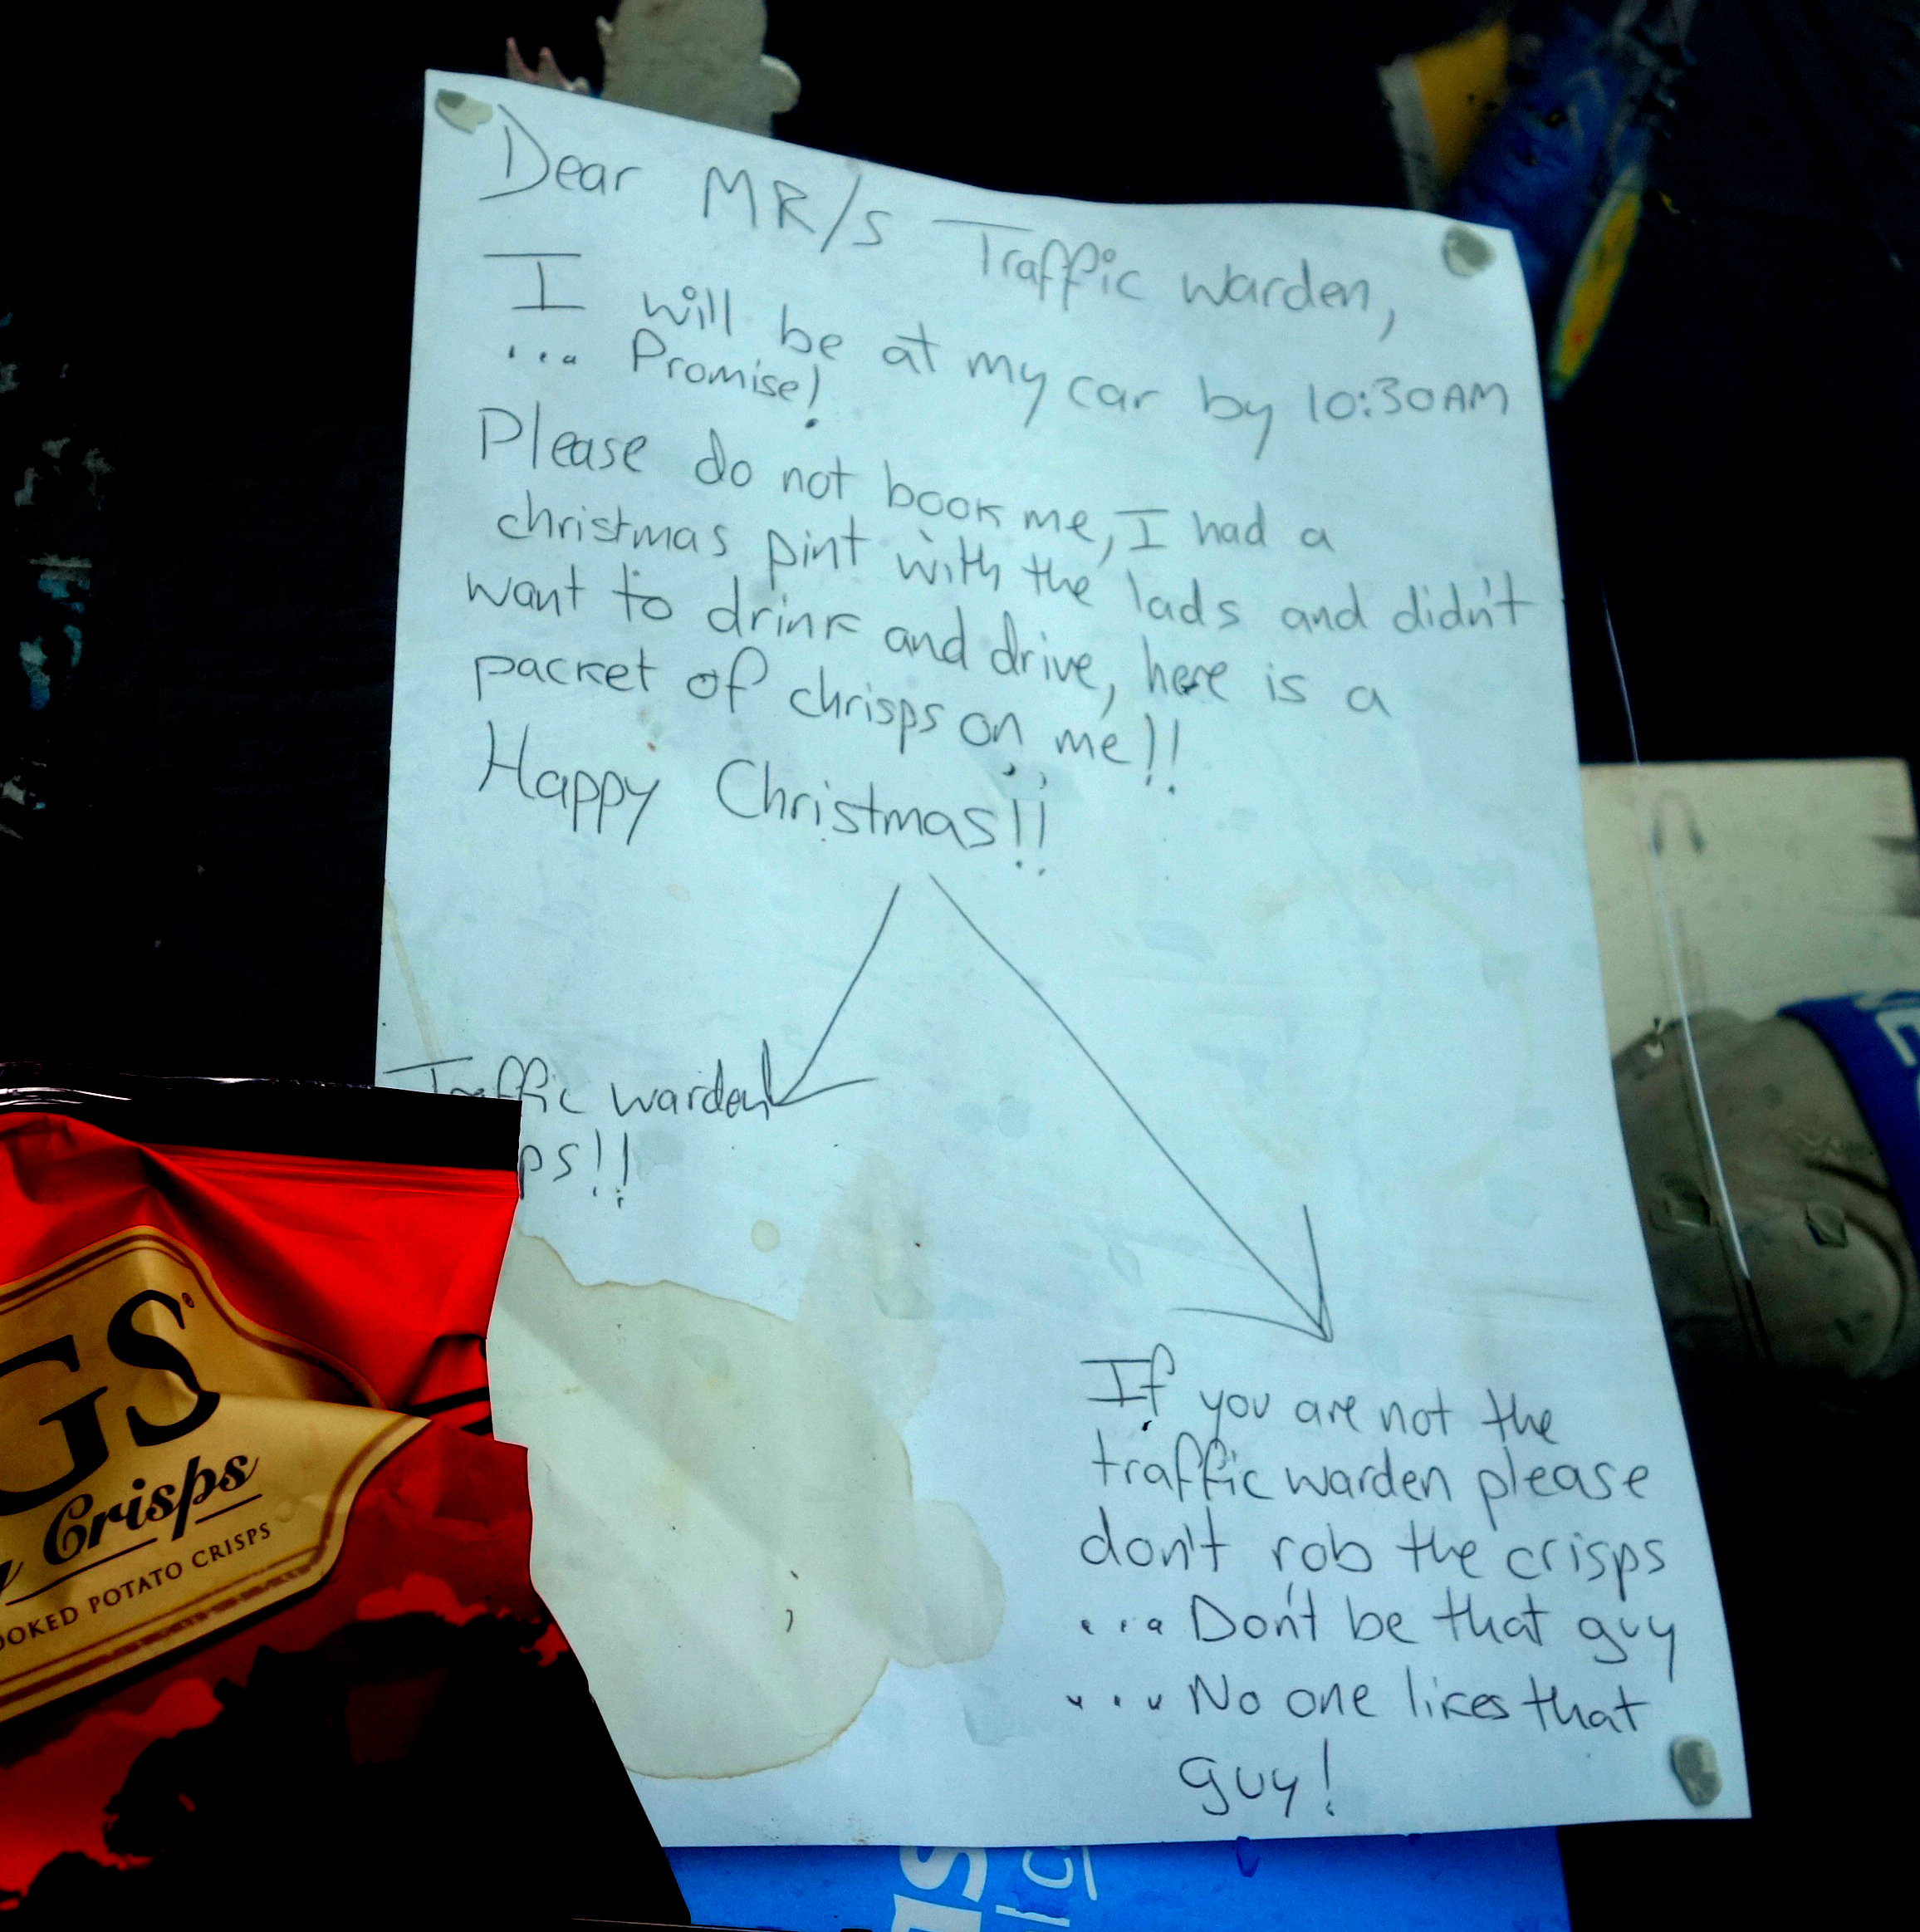 Dear MR/s Traffic warden,
I will be at my car by 10:30AM
... Promise!
Please do not book me, I had a
christmas pint with the lads and didn't
want to drink and drive, here is a
packet of chrisps on me!!
Happy Christmas!!
Traffic warden
ps!!
If you are not the
traffic warden please
don't rob the crisps
... Don't be that guy
... No one likes that
guy!
GS®
Crisps
OOKED POTATO CRISPS